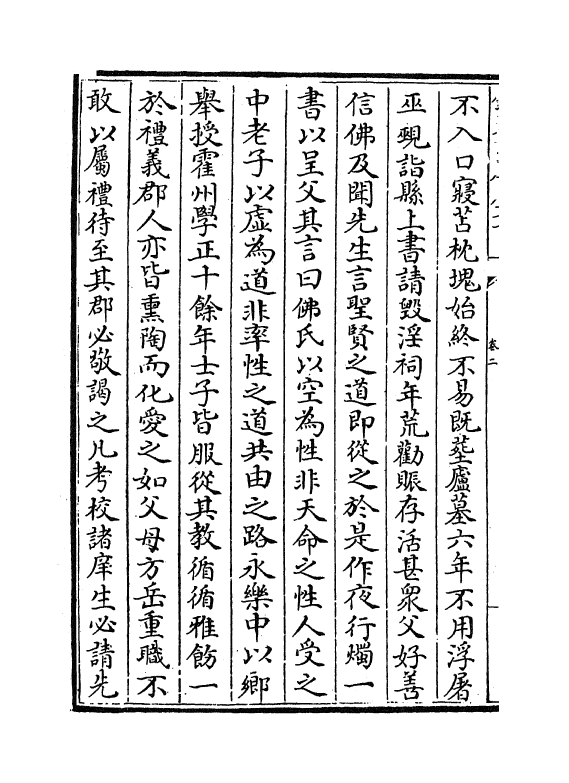 不入口寢苫枕塊始終不易既塟廬墓六年不用浮屠
巫覡詣縣上書請毁淫祠年荒勸賑存活甚衆父好善
信佛及聞先生言聖賢之道即從之於是作夜行燭一
書以呈父其言曰佛氏以空為性非天命之性人受之
中老子以虚為道非率性之道共由之路永樂中以鄉
舉授霍州學正十餘年士子皆服從其教循循雅飭一
於禮義郡人亦皆熏陶而化愛之如父母方岳重職不
敢以屬禮待至其郡必敬謁之凡考校諸庠生必請先
卷二